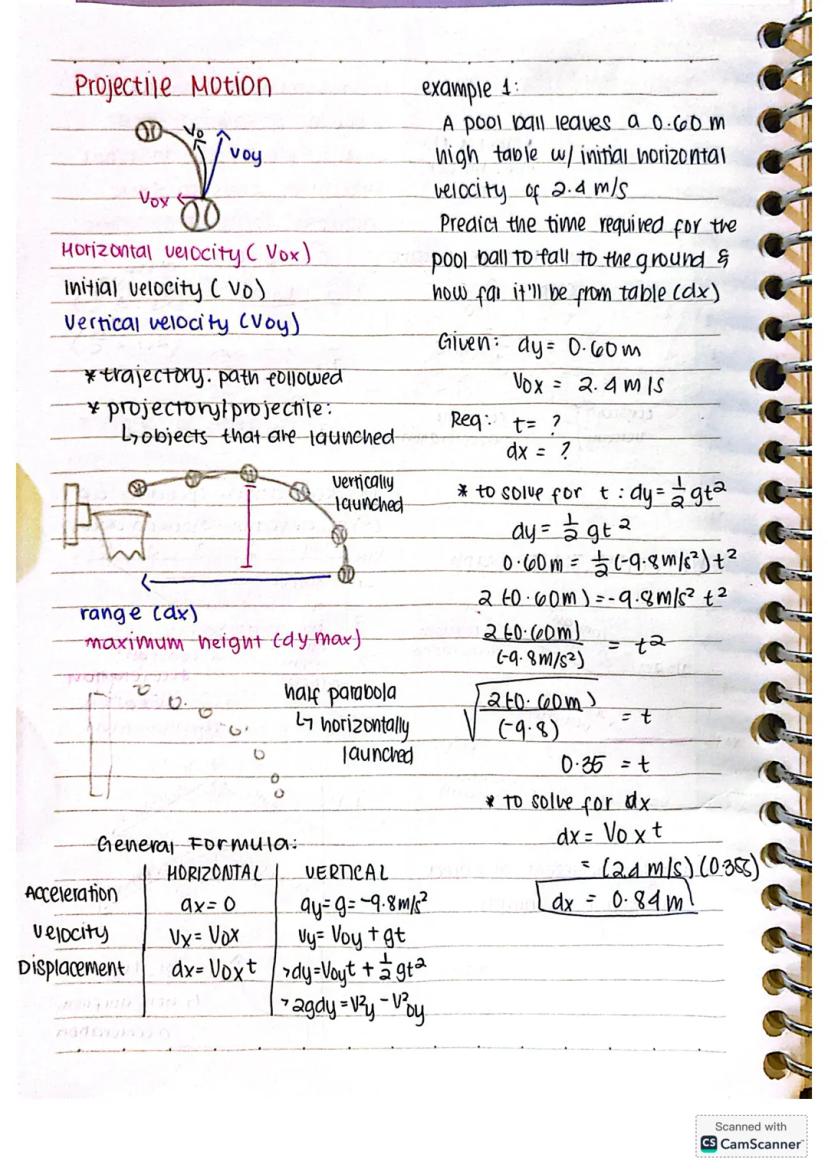 Projectile Motion
Vo
Voy
Vox
Horizontal velocity (Vox)
Initial velocity (Vo)
Vertical velocity (Voy)
* trajectory: path followed
* projectory/projectile:
↳ objects that are launched
vertically
launched
range (dx)
maximum height (dy max)
half parabola
↳ horizontally
launched
General Formula:
HORIZONTAL VERTICAL
Acceleration ax = 0 ay = g = -9.8 m/s²
Velocity Vx = Vox Vy = Voy + gt
Displacement dx = Voxt > dy = Voyt + ½ gt²
> 2gdy = V²y - V²oy
example 1:
A pool ball leaves a 0.60 m
high table w/ initial horizontal
velocity of 2.4 m/s
Predict the time required for the
pool ball to fall to the ground &
how far it'll be from table (dx)
Given: dy = 0.60 m
Vox = 2.4 m/s
Req: t = ?
dx = ?
* to solve for t : dy = ½ gt²
dy = ½ gt²
0.60 m = ½ (-9.8 m/s²) t²
2 (0.60 m) = -9.8 m/s² t²
2 (0.60 m) / (-9.8 m/s²) = t²
√ 2 (0.60 m) / (-9.8) = t
0.35 = t
* to solve for dx
dx = Vo x t
= (2.4 m/s) (0.35s)
dx = 0.84 m
Scanned with
CS CamScanner